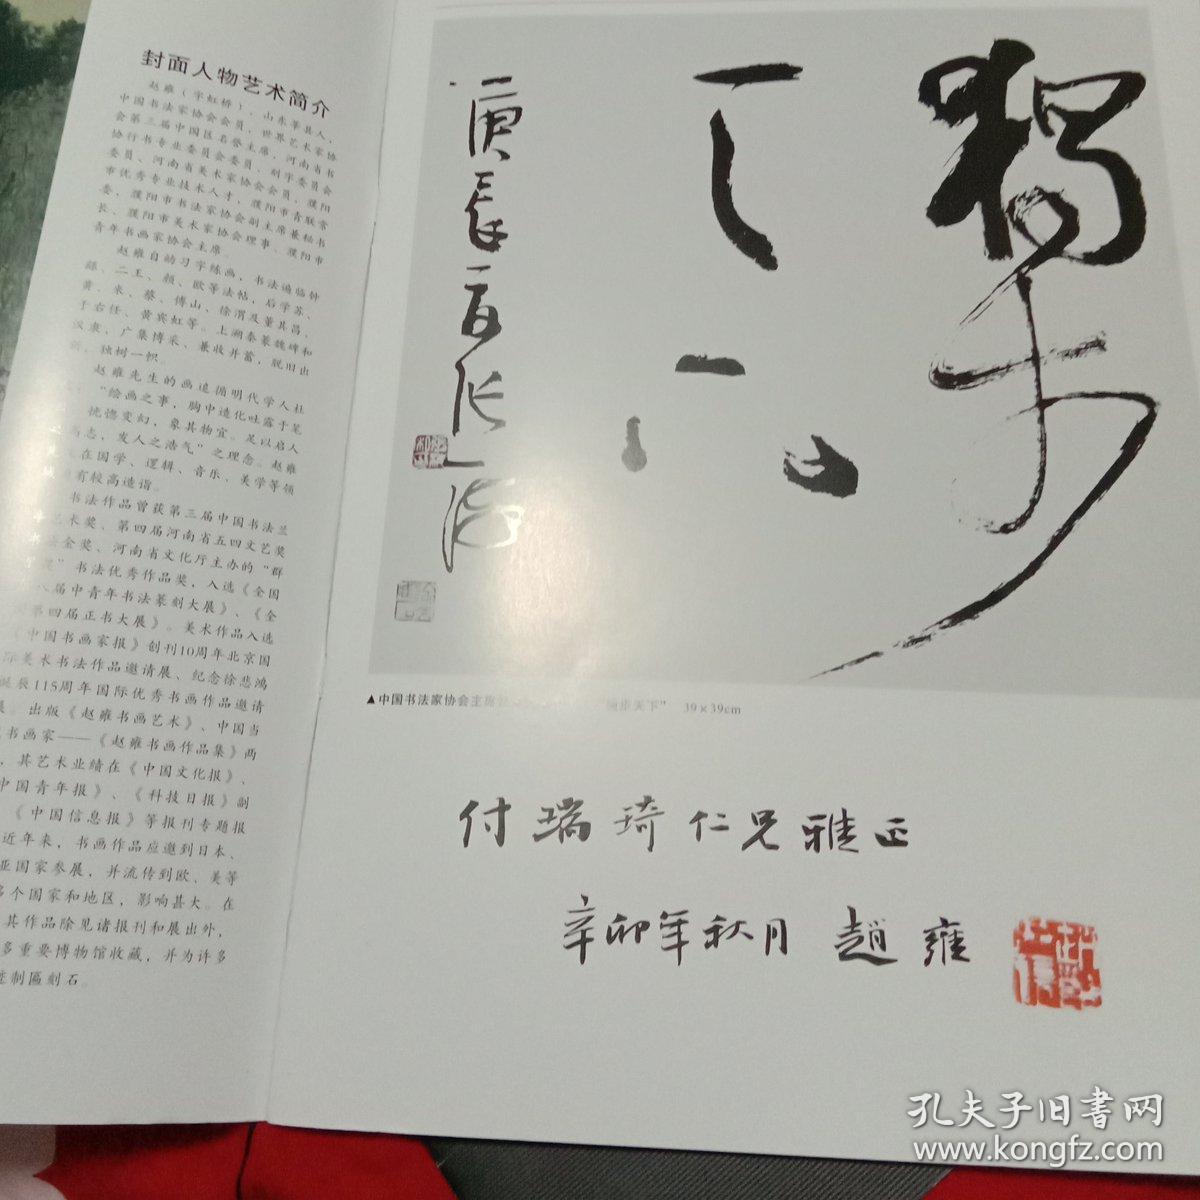 封面人物艺术简介
赵雍（字虹桥），山东莘县人，
中国书法家协会会员，世界艺术家协
会第三届中国区名誉主席，河南省书
协行书专业委员会委员、刻字委员会
委员、河南省美术家协会会员，濮阳
市优秀专业技术人才，濮阳市青联常
委，濮阳市书法家协会副主席兼秘书
长、濮阳市美术家协会理事、濮阳市
青年书画家协会主席。
赵雍自幼习字练画，书法遍临钟
繇、二王、颜、欧等法帖，后学苏、
黄、米、蔡、傅山、徐渭及董其昌、
于右任、黄宾虹等。上溯秦篆魏碑和
汉隶，广集博采、兼收并蓄，脱旧出
新，独树一帜。
赵雍先生的画追循明代学人杜
“绘画之事，胸中造化吐露于笔
恍惚变幻，象其物宜。足以启人
高志，发人之浩气”之理念。赵雍
在国学、逻辑、音乐、美学等领
有较高造诣。
书法作品曾获第三届中国书法兰
艺术奖、第四届河南省五四文艺奖
金奖、河南省文化厅主办的“群
书法优秀作品奖，入选《全国
八届中青年书法篆刻大展》、《全
第四届正书大展》。美术作品入选
《中国书画家报》创刊10周年北京国
际美术书法作品邀请展、纪念徐悲鸿
诞辰115周年国际优秀书画作品邀请
展。出版《赵雍书画艺术》、中国当
书画家——《赵雍书画作品集》两
，其艺术业绩在《中国文化报》、
中国青年报》、《科技日报》副
《中国信息报》等报刊专题报
近年来，书画作品应邀到日本、
亚国家参展，并流传到欧、美等
多个国家和地区，影响甚大。在
其作品除见诸报刊和展出外，
多重要博物馆收藏，并为许多
制匾刻石。
獨步
天下
庚辰
▲中国书法家协会主席
独步天下” 39×39cm
付瑞琦仁兄雅正
辛卯年秋月 趙雍
孔夫子旧书网
www.kongfz.com